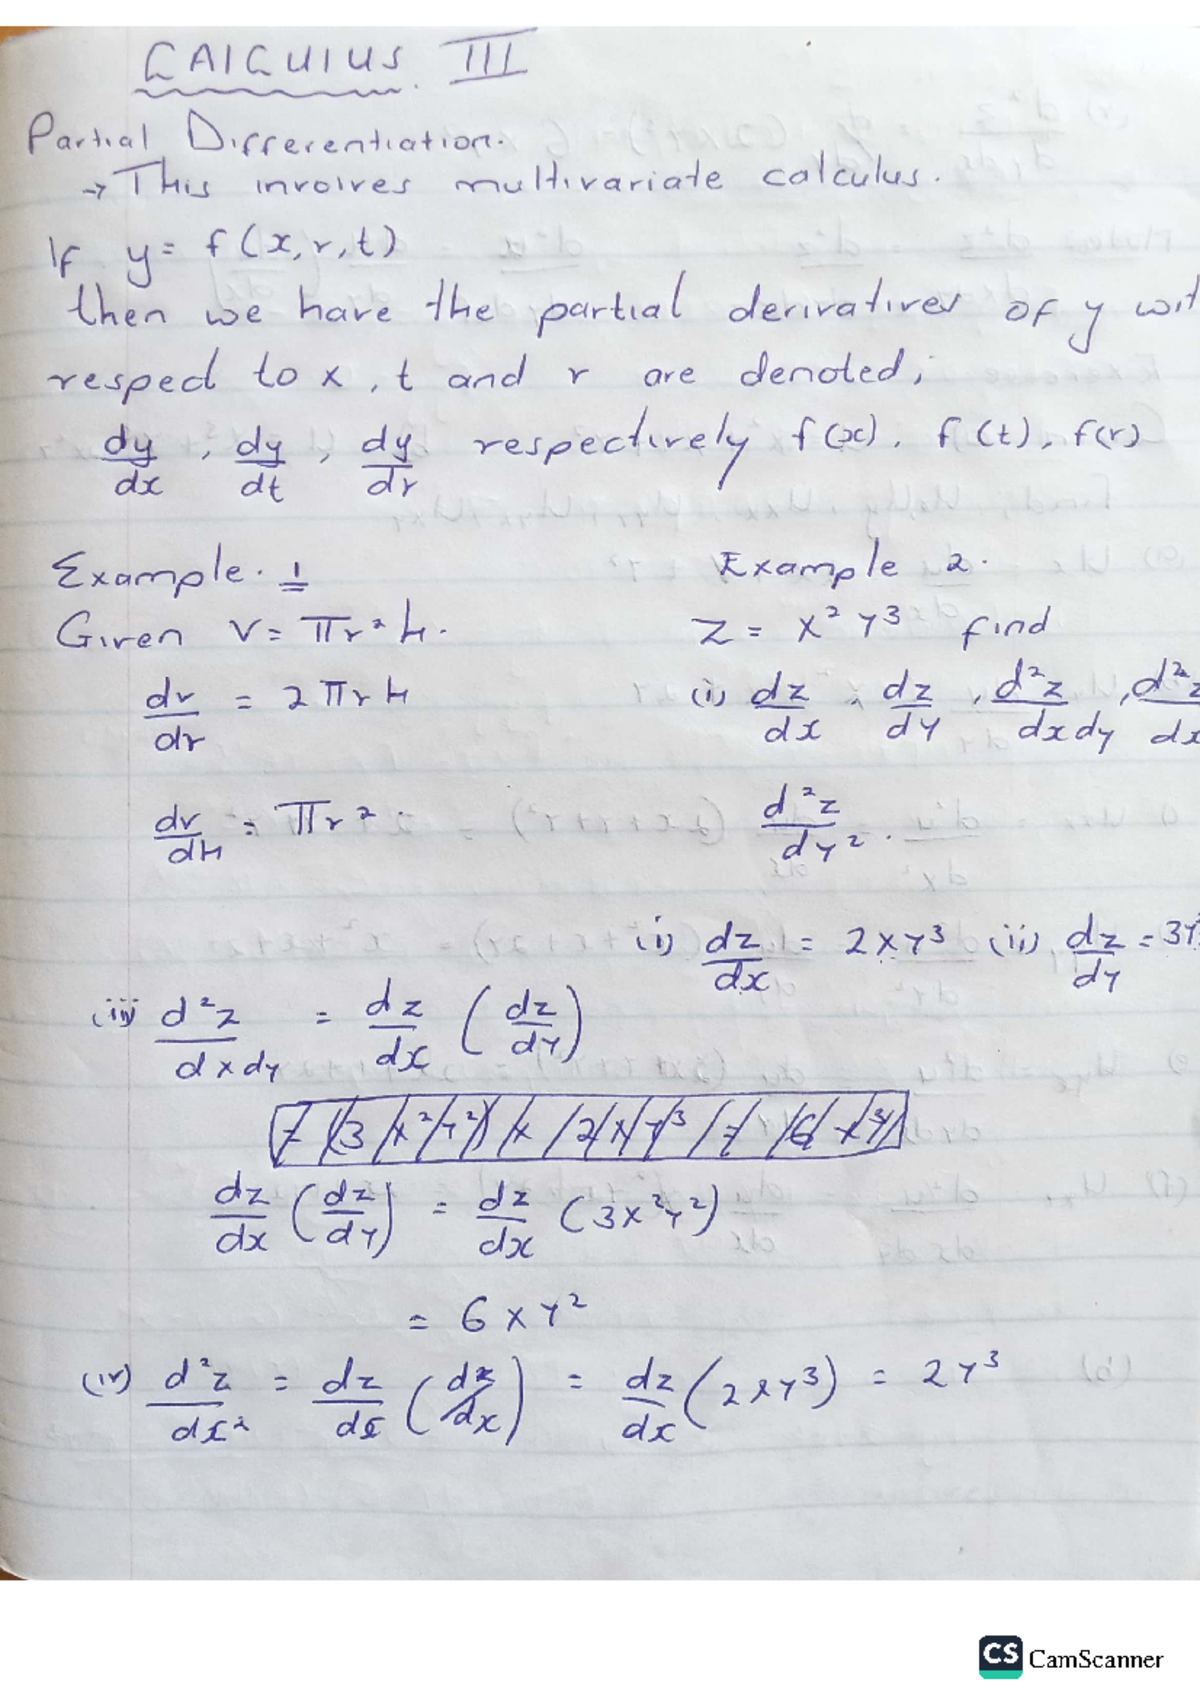 CALCULUS III
Partial Differentiation.
→ This involves multivariate calculus.
If y = f(x, r, t)
then we have the partial derivatives of y wit
respect to x, t and r are denoted;
dy/dx, dy/dt, dy/dr respectively f(x), f(t), f(r)
Example. 1
Given V = πr²h.
dv/dr = 2πrh
dv/dh = πr².
Example 2.
Z = x²y³ find
(i) dz/dx, dz/dy, d²z/dxdy, d²z/dx
d²z/dy².
(i) dz/dx = 2xy³ (ii) dz/dy = 3y
(iii) d²z/dxdy = dz/dx (dz/dy)
dz/dx (dz/dy) = dz/dx (3x²y²)
= 6xy²
(iv) d²z/dx² = dz/dx (dz/dx) = dz/dx (2xy³) = 2y³
CS CamScanner